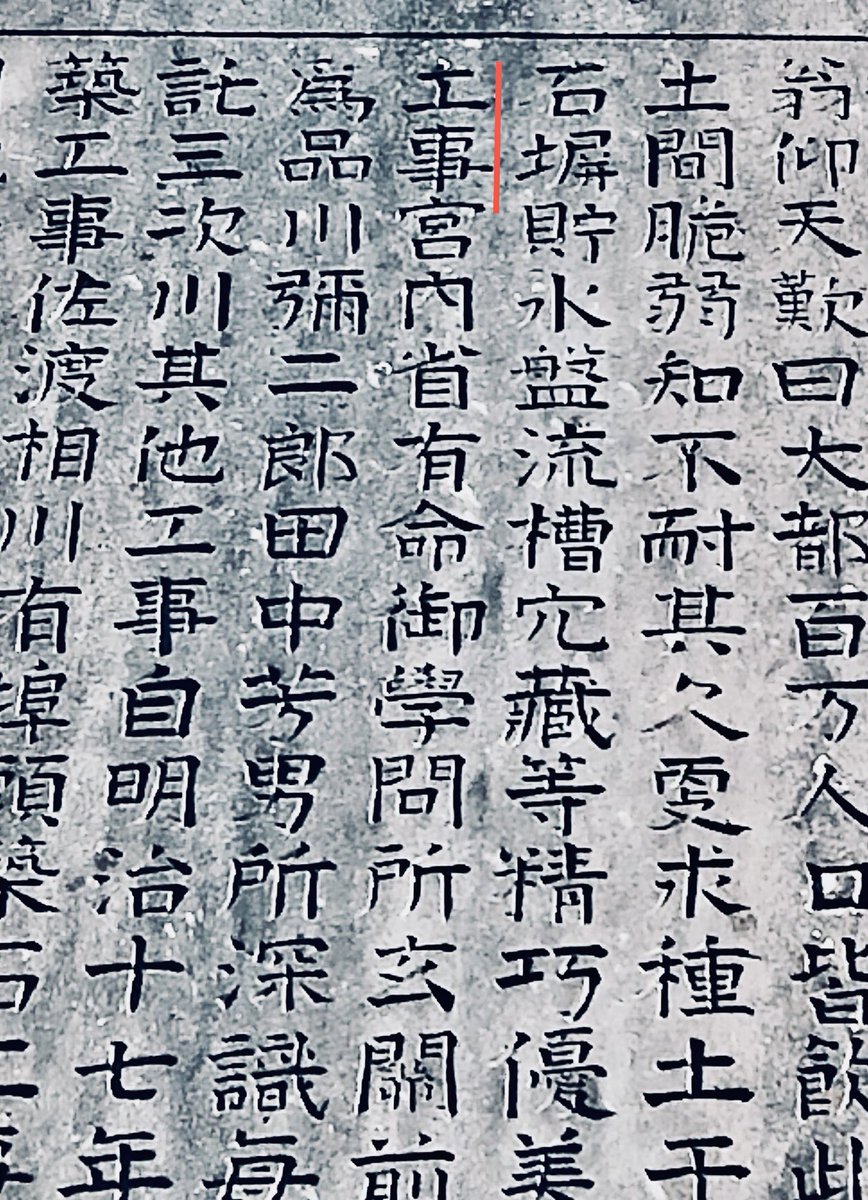 翁仰天歎曰大都百万人口皆飲此
土間脆弱知不耐其久更求種土于
石塀貯水盤流槽穴藏等精巧優美
工事宮内省有命御學問所玄關前
爲品川彌二郎田中芳男所深識毎
託三次川其他工事自明治十七年
築工事佐渡相川有埠頭築石工事